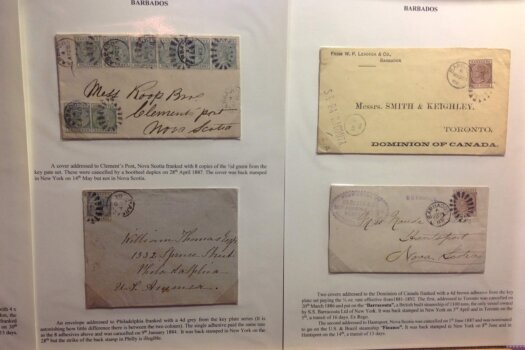 BARBADOS
Mess Roop Bros
Clements port
Nova Scotia
A cover addressed to Clement's Post, Nova Scotia franked with 8 copies of the ½d green from the
key pate set. These were cancelled by a bootheel duplex on 28th April 1887. The cover was back stamped
in New York on 14th May but not in Nova Scotia.
William Thomas Esq
1332 Spruce Street
Philadelphia
U.S. America
An envelope addressed to Philadelphia franked with a 4d grey from the key plate series (It is
astonishing how little difference there is between the two colours). The single adhesive paid the same rate
as the 8 adhesives above and was cancelled on 9th January 1884. It was back stamped in New York
on the 28th but the strike of the back stamp in Philly is illegible.
BARBADOS
From W. P. &amp; Co.,
Barbados
Messrs. SMITH & KEIGHLEY,
TORONTO,
DOMINION OF CANADA.
BARBADOS
Hantsport
Nova Scotia
Two covers addressed to the Dominion of Canada franked with a 4d brown adhesive from the key
plate set paying the ½ oz. rate effective from 1881-1892. The first, addressed to Toronto was cancelled on
20th March 1886 and put on the "Barracouta", a British built steamship of 1100 tons, the only vessel owned
by S.S. Barracouta Ltd of New York. It was back stamped in New York on 3rd April and in Toronto on the
5th, a transit of 16 days. Ex Bagé.
The second addressed to Hantsport, Nova Scotia was cancelled on 1887 and was destined
to go on the U.S. & Brazil steamship "Finance". It was back stamped in New York on 8th June and in
Hantsport on the 14th, a transit of 13 days.